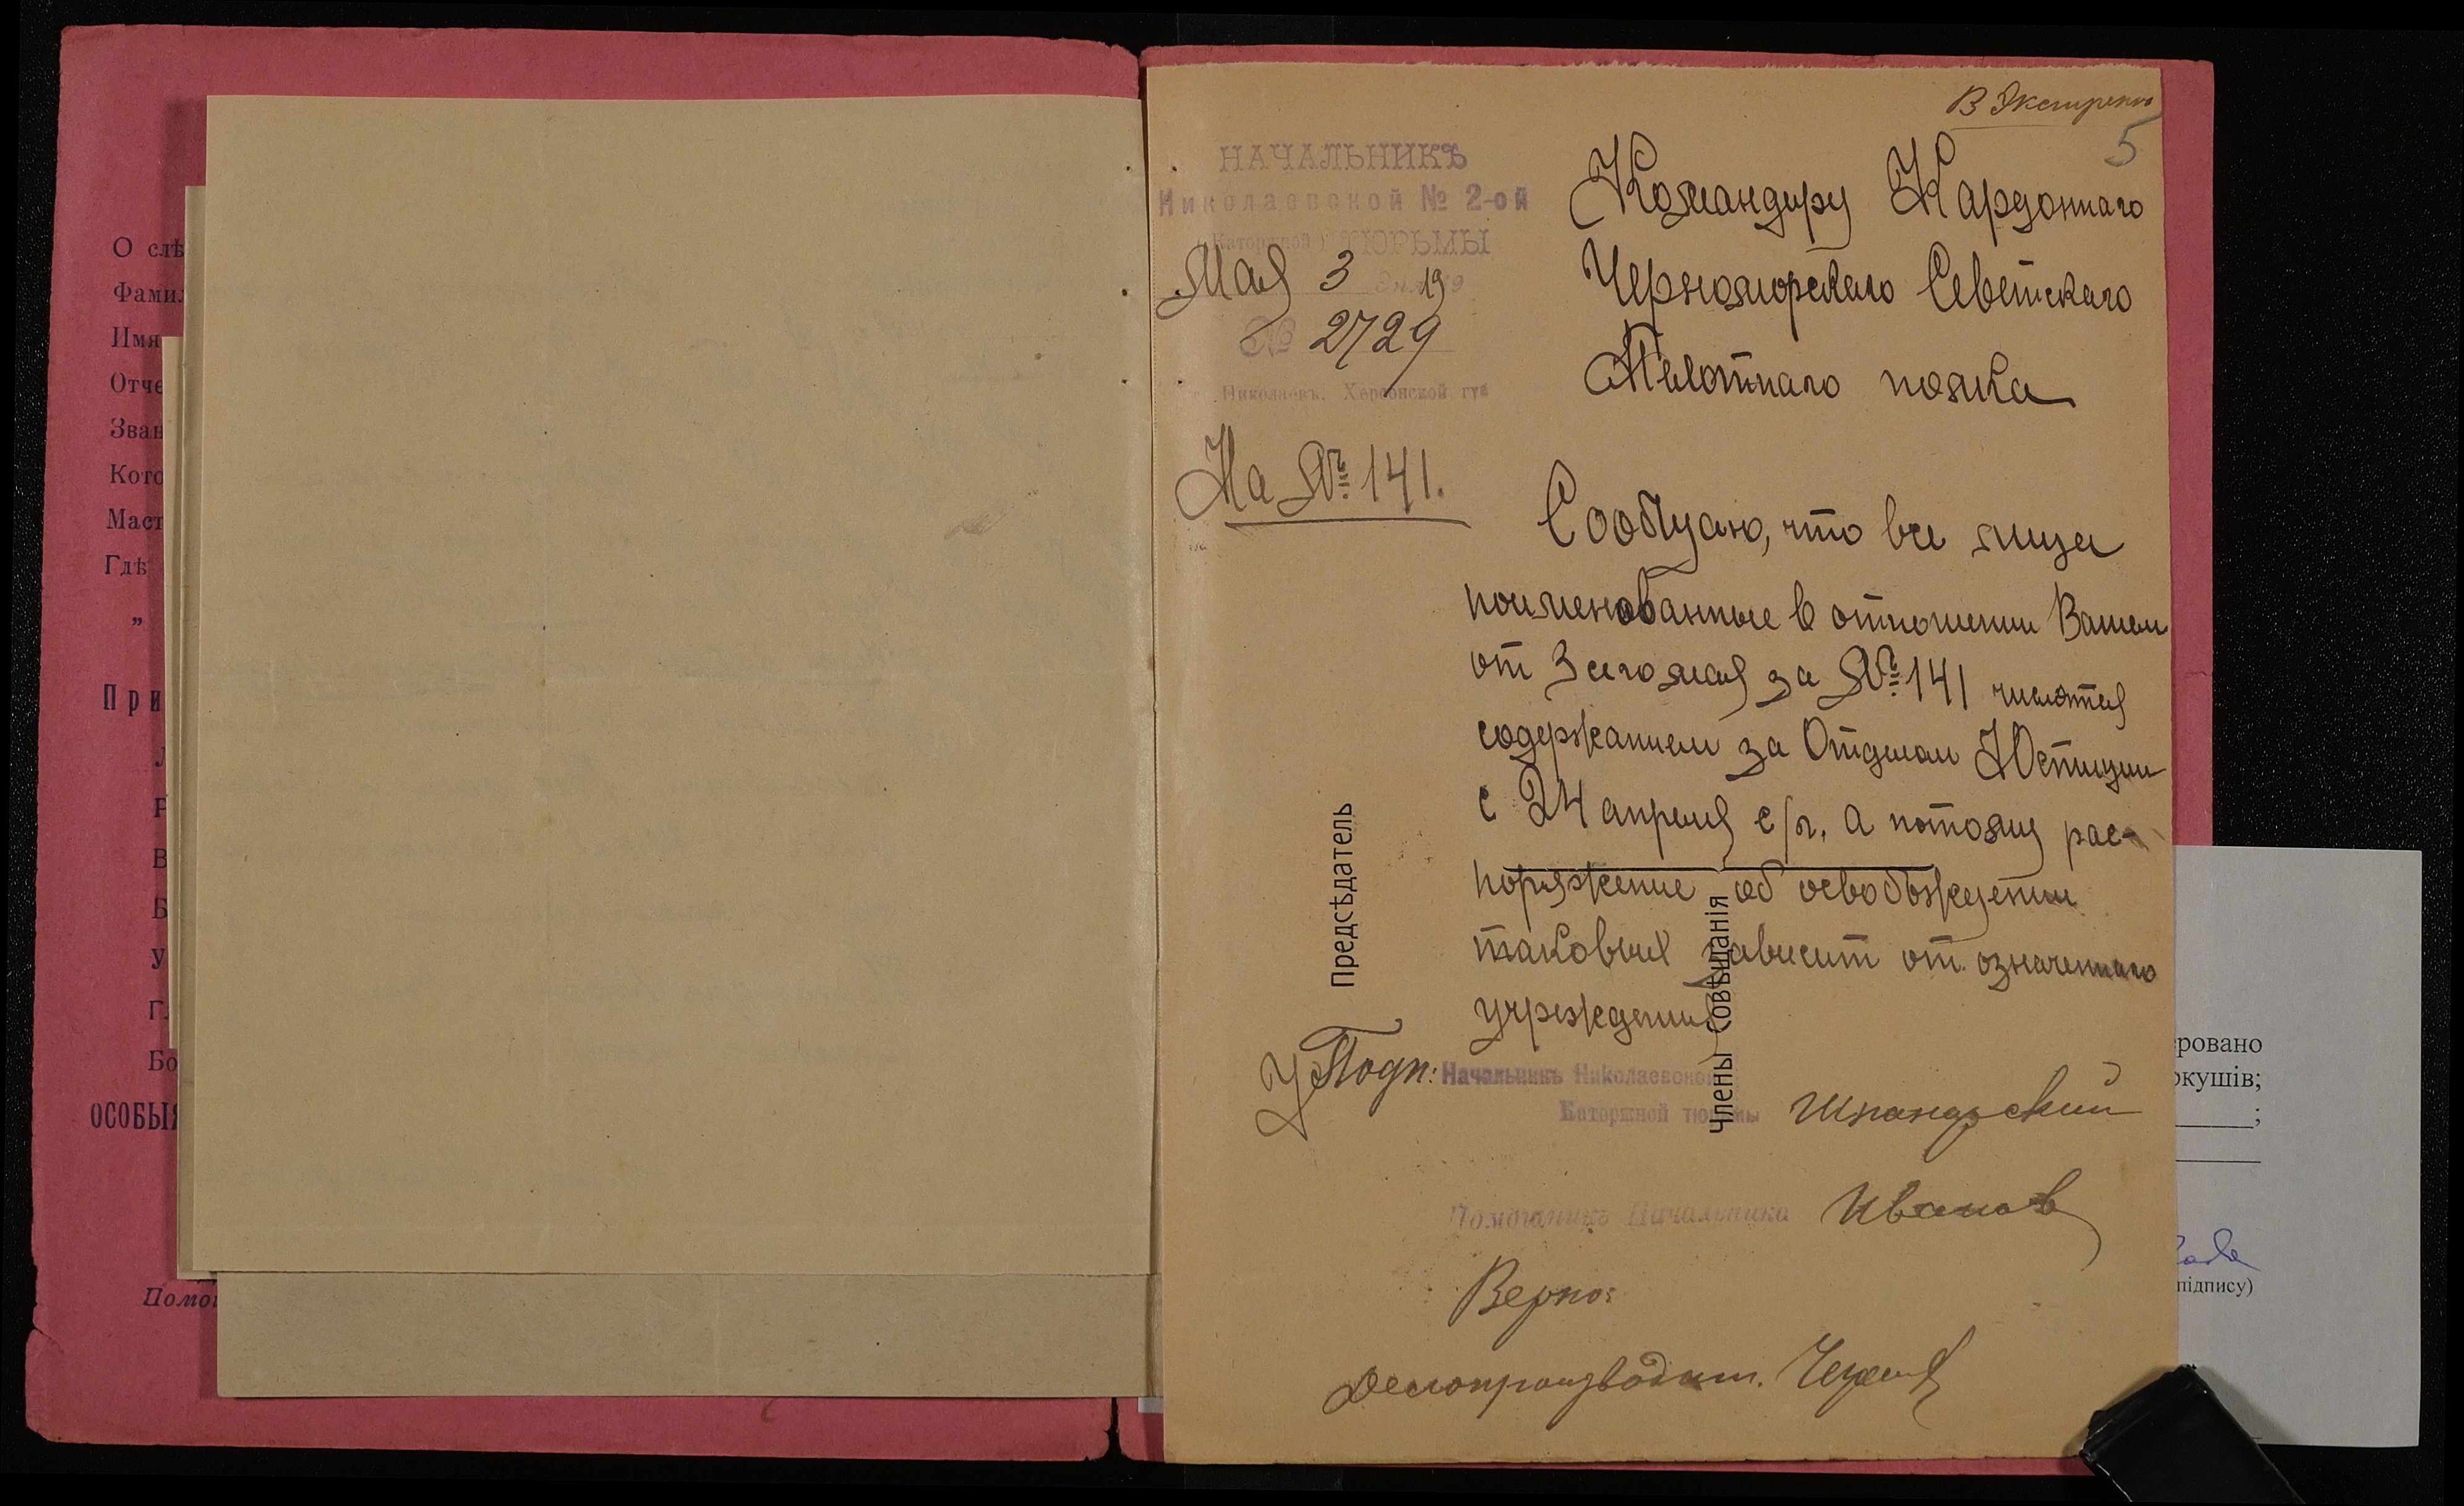 О слѣ
Фамил
Имя
Отче
Зван
Кото
Маст
Гдѣ
"
При
Л
Р
В
Б
У
Г
Бо
ОСОБЫЯ
Помо
В Экстренно
5
НАЧАЛЬНИКЪ
Николаевской № 2-ой
(Каторжной) ТЮРЬМЫ
Мая 3 дня 1919
№ 2729
г. Николаевъ, Херсонской губ
На № 141.
Командиру Кардоннаго
Черноморскаго Советскаго
Пехотнаго полка
Сообщаю, что все лица
поименованные в отношении Вашем
от 3 сего мая за № 141 числятся
содержанием за Отделом Юстиции
с 24 апреля с/г. а потому рас-
поряжение об освобождении
таковых зависит от означеннаго
учреждения
Предсѣдатель
Члены Совѣщанія
Подп: Начальникъ Николаевской
Каторжной тюрьмы Шпандуский
Помощникъ Начальника Иванов
Верно:
Делопроизводит.
ровано
ркушів;
;
підпису)